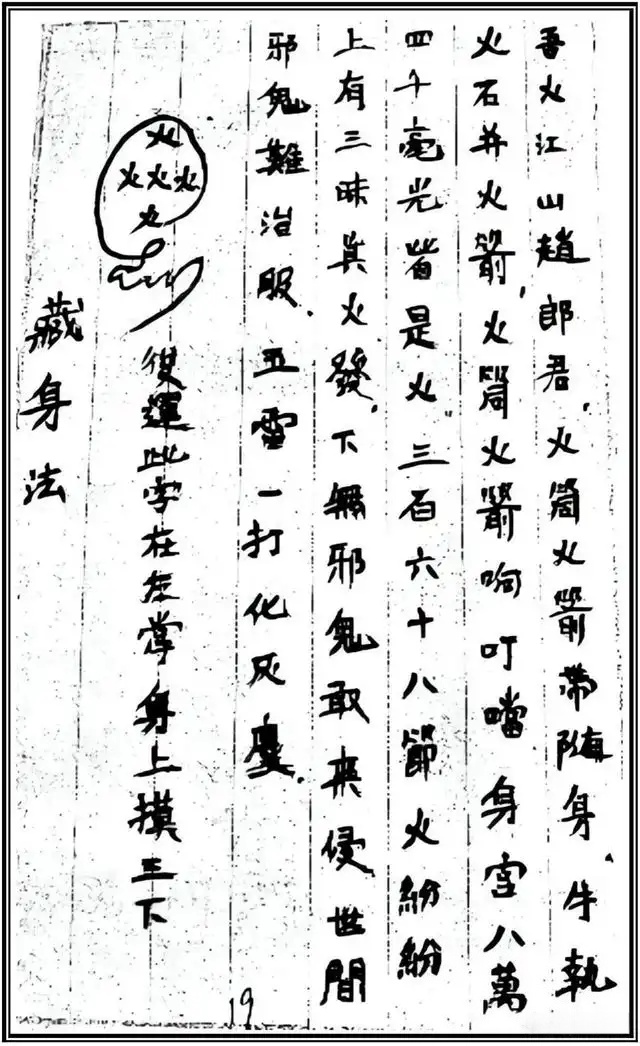 吾火江山趙郎君，火筒火箭帶隨身，牛執
火石并火箭，火筒火箭响叮噹身宮八萬
四千毫光皆是火，三百六十八節火紛紛
上有三昧真火發，下無邪鬼敢来侵世間
邪鬼難治服，五雷一打化灰塵，
火
火火火
火
後運此字在左掌身上摸三下
藏身法
19